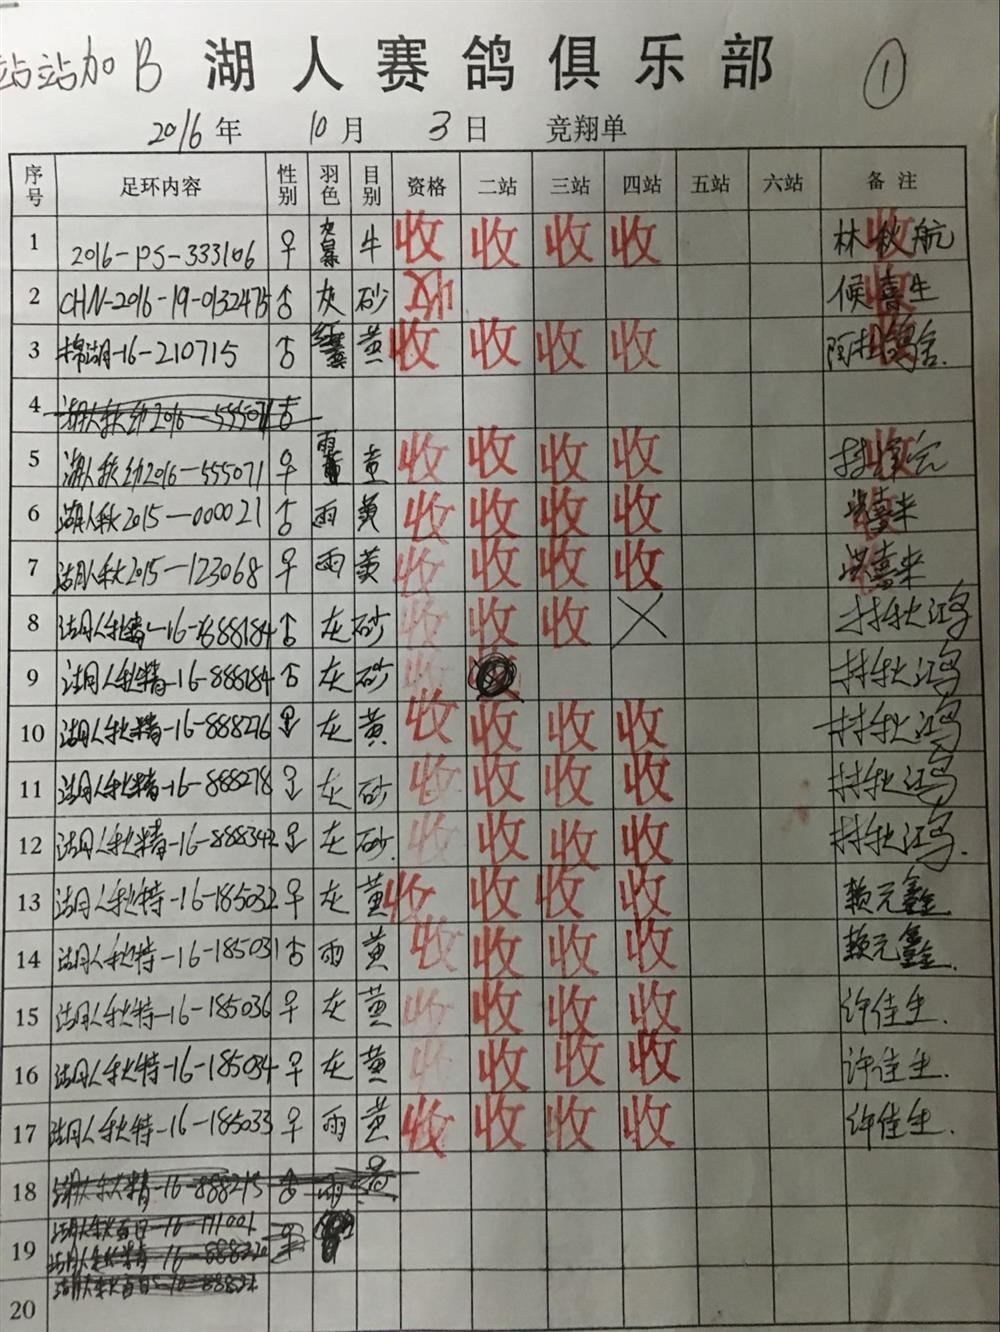 站站加B 湖人赛鸽俱乐部 ①
2016年 10月 3日 竞翔单
序号 足环内容 性别 羽色 目别 资格 二站 三站 四站 五站 六站 备注
1 2016-PS-333106 ♀ 牛 收 收 收 收 林秋航
2 CHN-2016-19-0132475 ♂ 灰 砂 收 候喜生
3 棉湖-16-210715 ♂ 黄 收 收 收 收
4
5 湖人秋幼2016-555071 ♀ 黄 收 收 收 收
6 湖人秋2015-000021 ♂ 雨 黄 收 收 收 收 洪喜来
7 湖人秋2015-123068 ♀ 雨 黄 收 收 收 收 洪喜来
8 湖人秋精-16-888184 ♂ 灰 砂 收 收 收 林秋鸿
9 湖人秋精-16-888184 ♂ 灰 砂 收 林秋鸿
10 湖人秋精-16-888276 灰 黄 收 收 收 收 林秋鸿
11 湖人秋精-16-888278 灰 砂 收 收 收 收 林秋鸿
12 湖人秋精-16-888342 灰 砂. 收 收 收 收 林秋鸿.
13 湖人秋特-16-185032 ♀ 灰 黄 收 收 收 收 赖元鑫
14 湖人秋特-16-185031 ♂ 雨 黄 收 收 收 收 赖元鑫.
15 湖人秋特-16-185036 ♀ 灰 黄 收 收 收 收 许佳生.
16 湖人秋特-16-185034 ♀ 灰 黄 收 收 收 收 许佳生.
17 湖人秋特-16-185033 ♀ 雨 黄 收 收 收 收 许佳生.
18
19
20